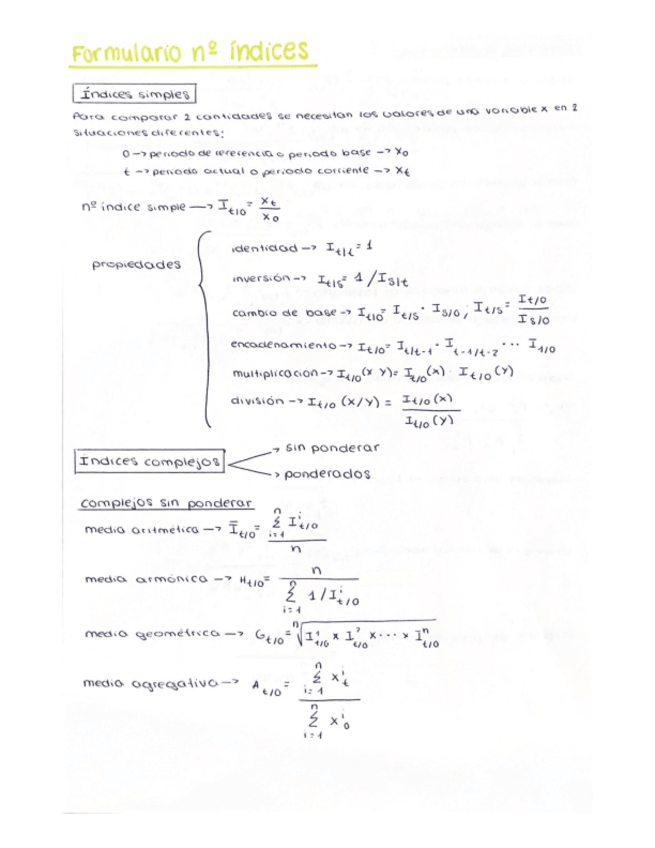 Formulario nº índices
Índices simples
Para comparar 2 cantidades se necesitan los valores de una variable x en 2
situaciones diferentes:
0 → periodo de referencia o periodo base → X₀
t → periodo actual o periodo corriente → Xₜ
nº índice simple → I_t/0 = Xₜ / X₀
propiedades
identidad → I_t/t = 1
inversión → I_t/s = 1 / I_s/t
cambio de base → I_t/0 = I_t/s · I_s/0 ; I_t/s = I_t/0 / I_s/0
encadenamiento → I_t/0 = I_t/t-1 · I_t-1/t-2 ··· I_1/0
multiplicación → I_t/0 (x y) = I_t/0 (x) · I_t/0 (y)
división → I_t/0 (x/y) = I_t/0 (x) / I_t/0 (y)
Índices complejos → sin ponderar
→ ponderados
complejos sin ponderar
media aritmética → Ī_t/0 = Σ_{i=1}^{n} I^i_t/0 / n
media armónica → H_t/0 = n / Σ_{i=1}^{n} 1/I^i_t/0
media geométrica → G_t/0 = ⁿ√(I¹_t/0 x I²_t/0 x ··· x Iⁿ_t/0)
media agregativa → A_t/0 = Σ_{i=1}^{n} x^i_t / Σ_{i=1}^{n} x^i_0